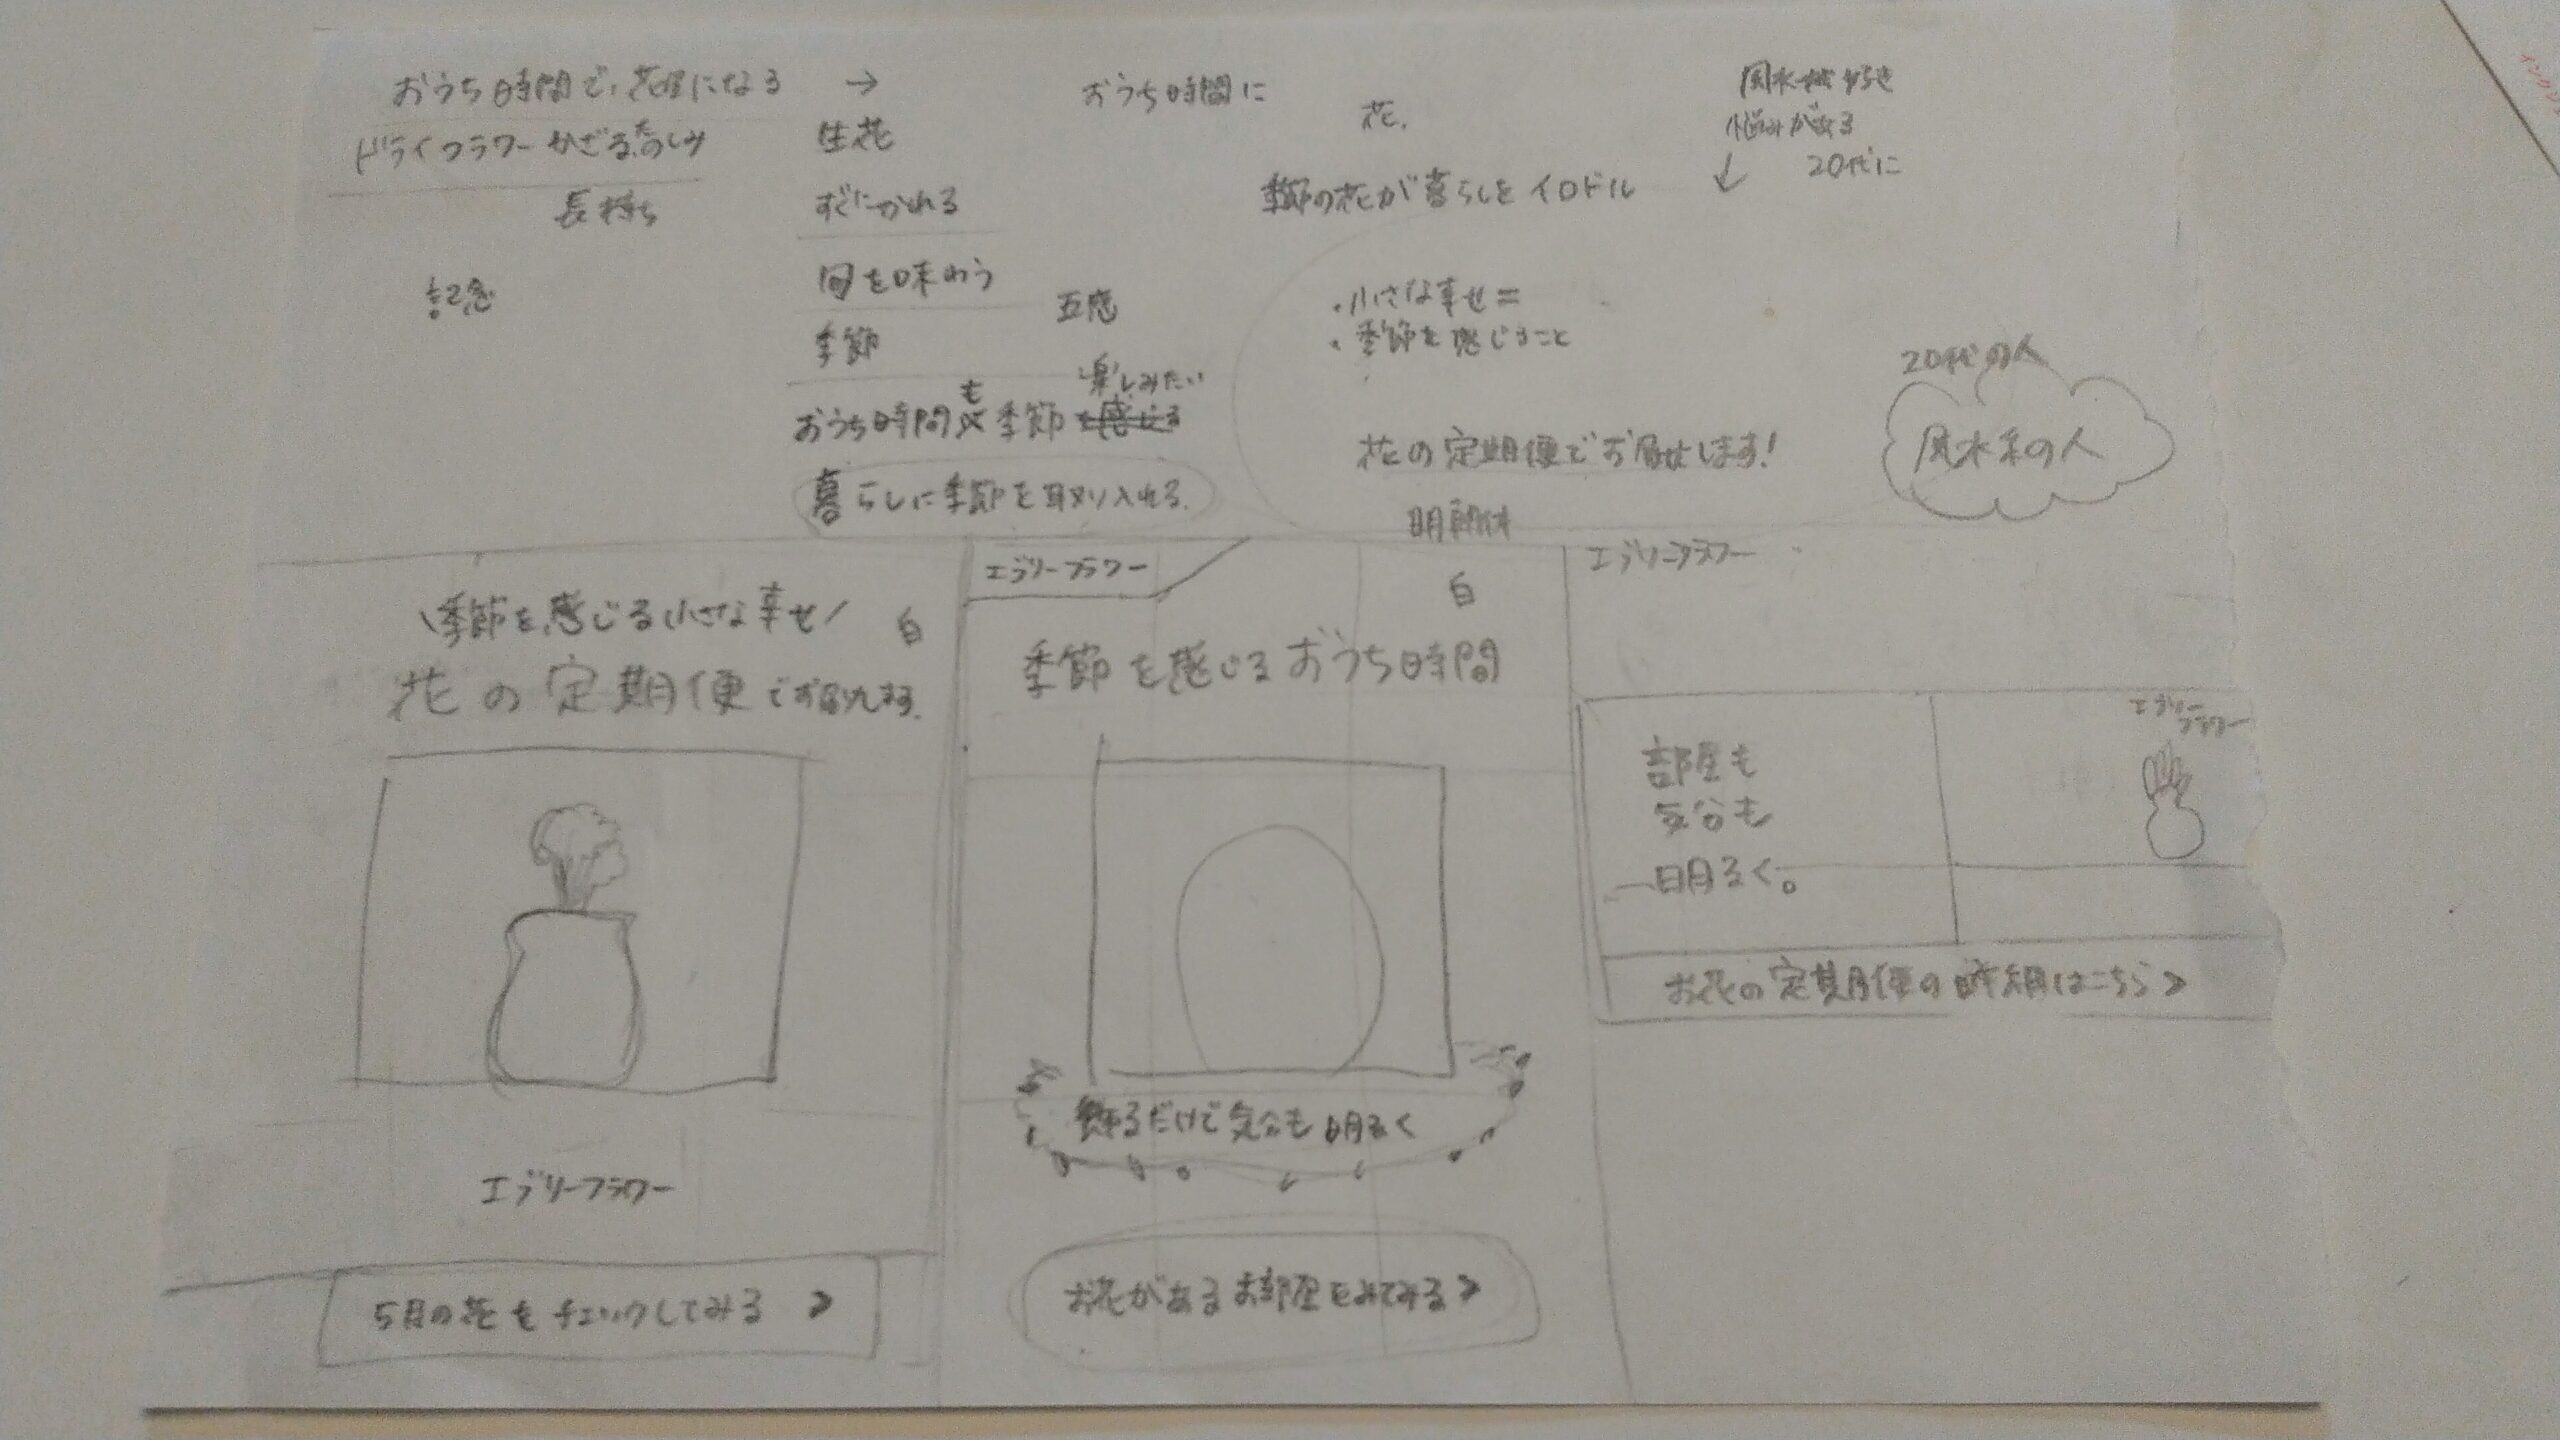 おうち時間で、花屋になる →
ドライフラワー かざる たのしみ
長持ち
記念
生花
すぐにかれる
旬を味わう
五感
季節
おうち時間も季節 楽しみたい
暮らしに季節を取り入れる.
おうち時間に
花.
季節の花が暮らしをイロドル
風水
悩みがある
20代に
・小さな幸せ=
・季節を感じること
花の定期便でお届けします!
明朝体
20代の人
風水系の人
\季節を感じる小さな幸せ/
白
花の定期便でお届けします.
エブリーフラワー
5月の花をチェックしてみる >
エブリーフラワー
白
季節を感じるおうち時間
飾るだけで気分も明るく
お花があるお部屋をみてみる>
エブリーフラワー
部屋も
気分も
明るく。
エブリー
フラワー
お花の定期便の詳細はこちら>